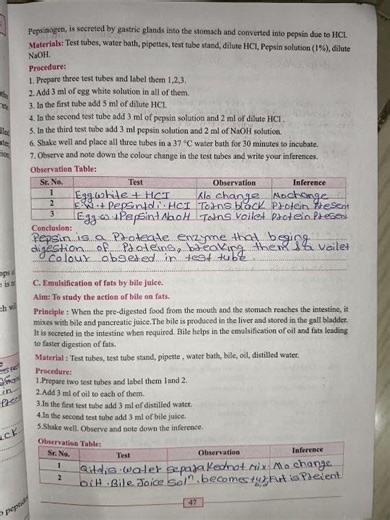 Pepsinogen, is secreted by gastric glands into the stomach and converted into pepsin due to HCl.
Materials: Test tubes, water bath, pipettes, test tube stand, dilute HCl, Pepsin solution (1%), dilute
NaOH.
Procedure:
1. Prepare three test tubes and label them 1,2,3.
2. Add 3 ml of egg white solution in all of them.
3. In the first tube add 5 ml of dilute HCl.
4. In the second test tube add 3 ml of pepsin solution and 2 ml of dilute HCl .
5. In the third test tube add 3 ml pepsin solution and 2 ml of NaOH solution.
6. Shake well and place all three tubes in a 37 °C water bath for 30 minutes to incubate.
7. Observe and note down the colour change in the test tubes and write your inferences.
Observation Table:
Sr. No. Test Observation Inference
1 Egg white + HCl No change No change
2 E.W + Pepsin + di. HCl Turns black Protein Present
3 Egg w + Pepsin + NaoH Turns voilet Protein Present
Conclusion:
Pepsin is a Proteate enzyme that being
digestion of Proteins, breaking them voilet
colour obsered in test tube.
C. Emulsification of fats by bile juice.
Aim: To study the action of bile on fats.
Principle : When the pre-digested food from the mouth and the stomach reaches the intestine, it
mixes with bile and pancreatic juice.The bile is produced in the liver and stored in the gall bladder.
It is secreted in the intestine when required. Bile helps in the emulsification of oil and fats leading
to faster digestion of fats.
Material : Test tubes, test tube stand, pipette , water bath, bile, oil, distilled water.
Procedure:
1.Prepare two test tubes and label them 1and 2.
2.Add 3 ml of oil to each of them.
3.In the first test tube add 3 ml of distilled water.
4.In the second test tube add 3 ml of bile juice.
5.Shake well. Observe and note down the inference.
Observation Table:
Sr. No. Test Observation Inference
1 dis. water not mix No change
2 Bile Joice Sol<sup>n</sup>. becomes Fat is Present
47